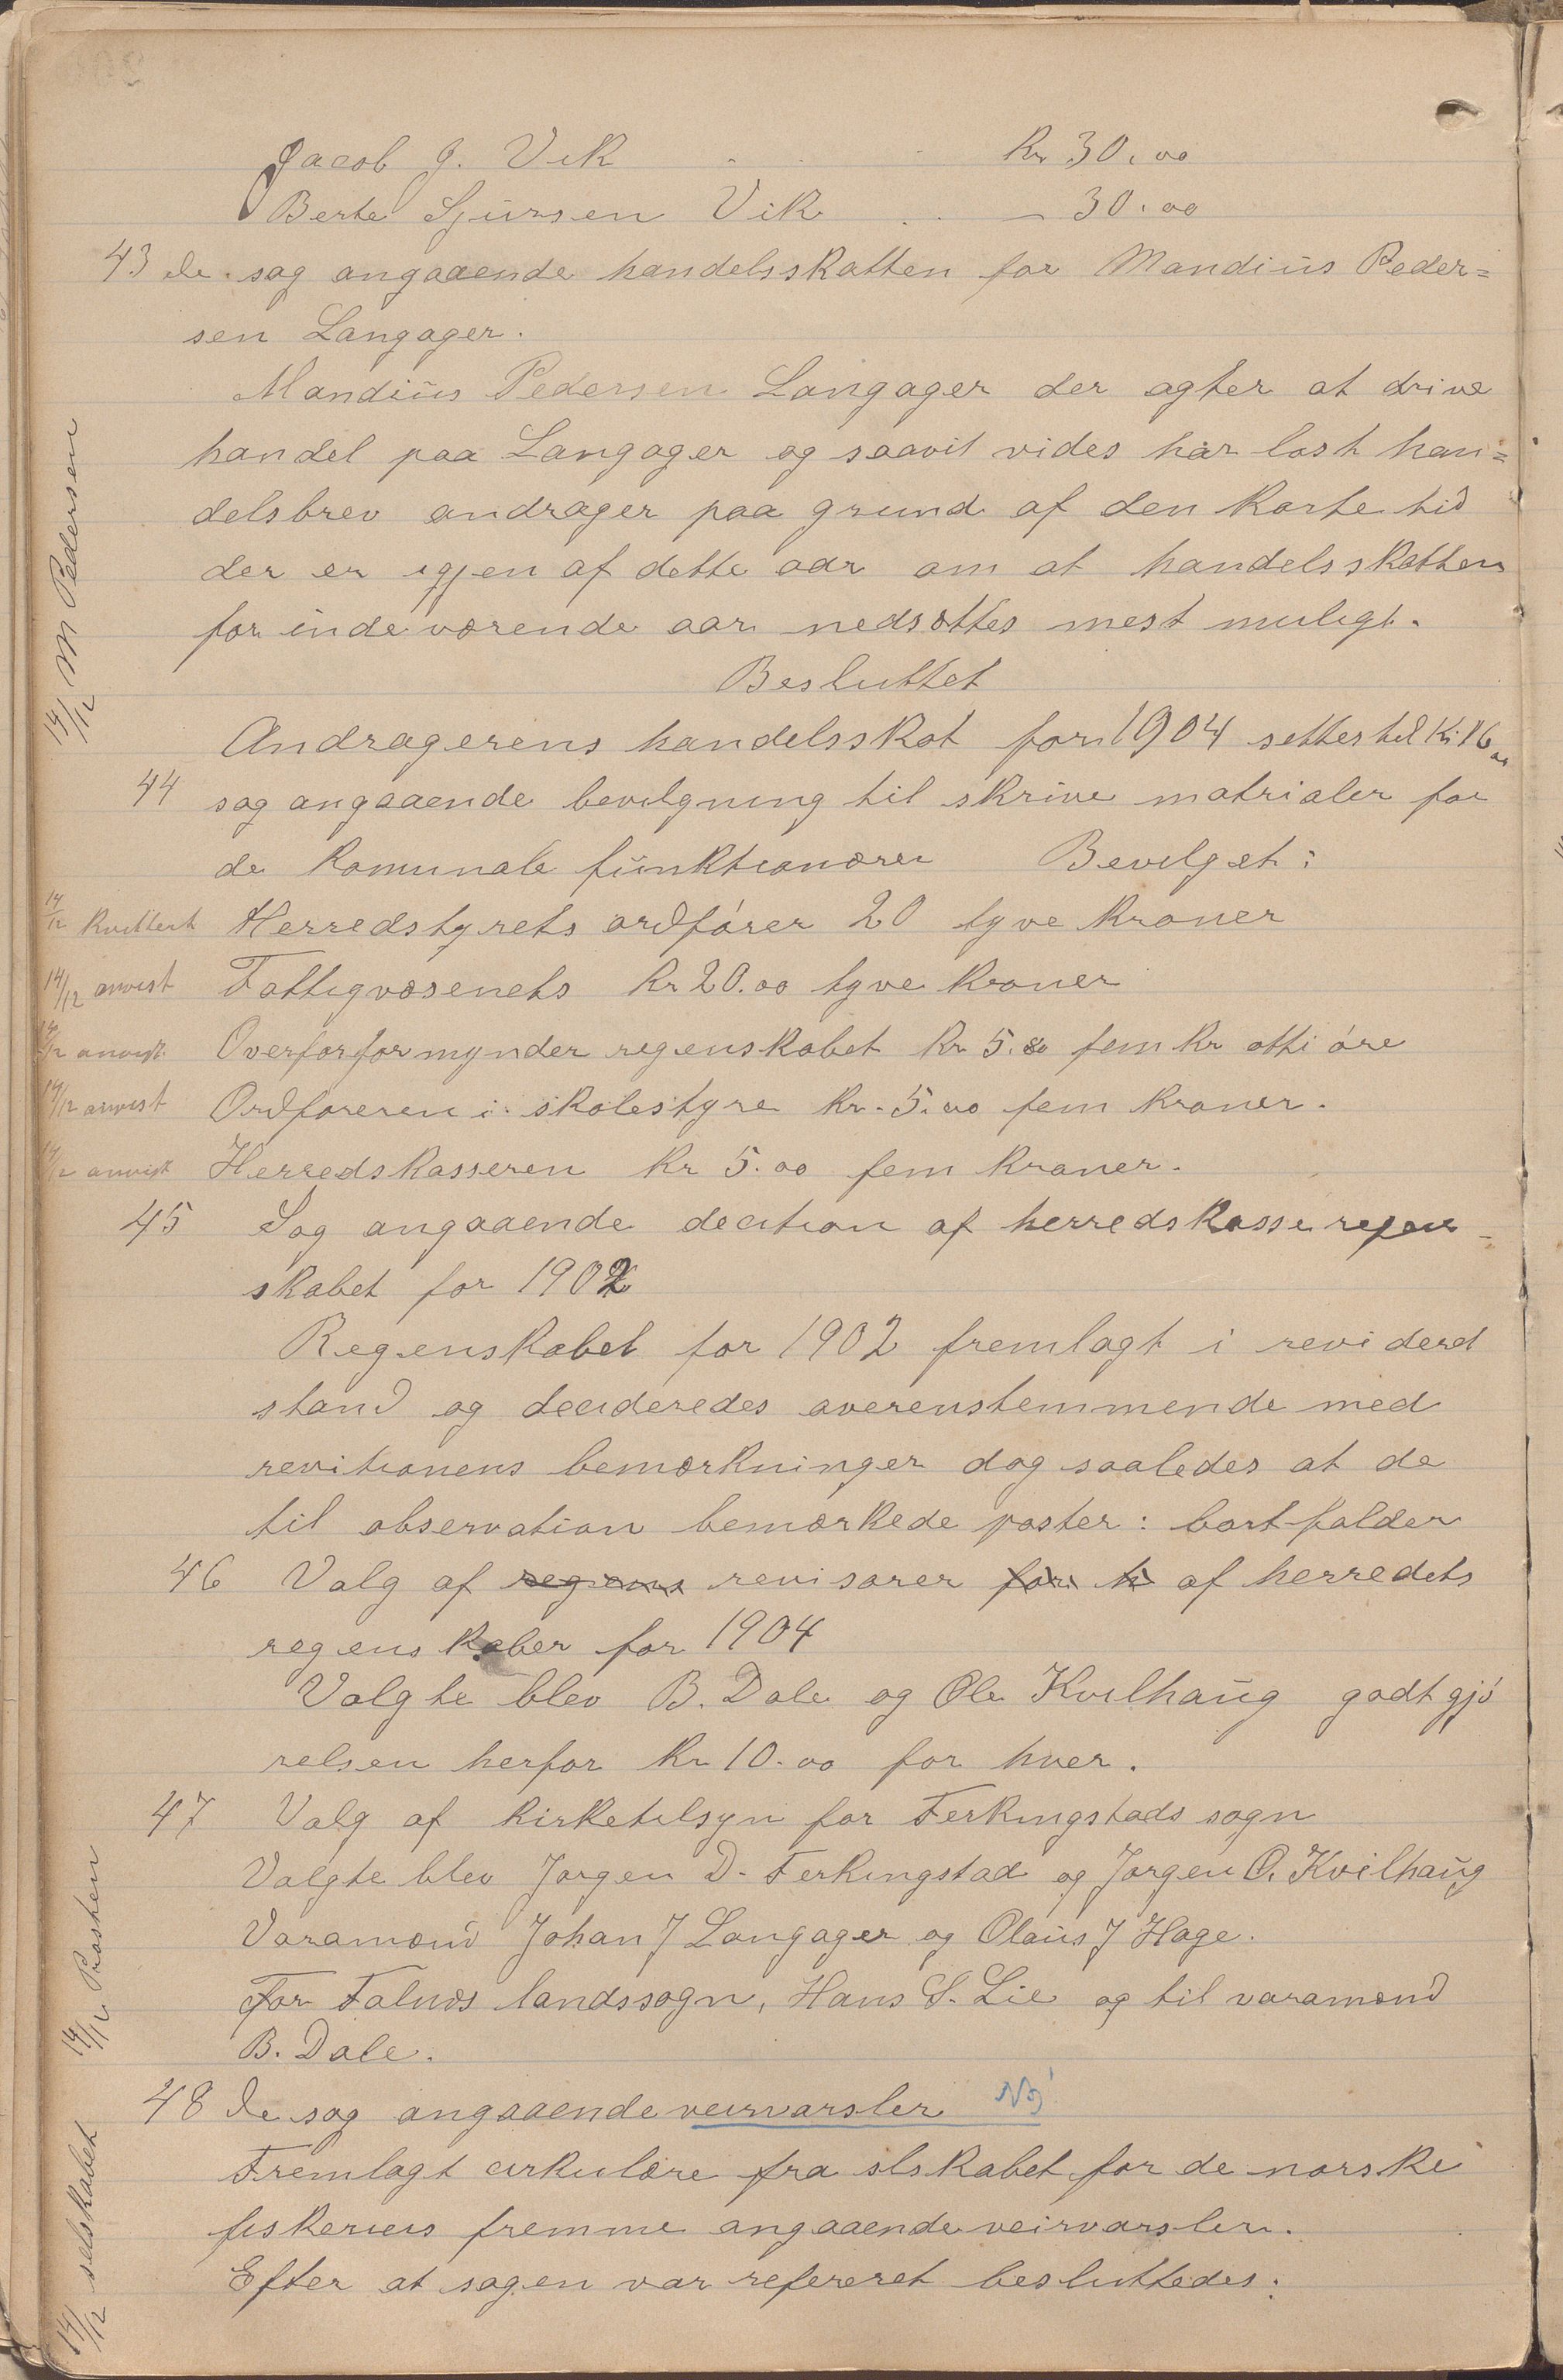 Jacob J. Vik . . . Kr 30.00
Berte Sjursen Vik . . — 30.00
43 de sag angaaende handelsskatten for Mandius Peder=
sen Langager.
Mandius Pedersen Langager der agter at drive
handel paa Langager og saavit vides har løst han=
delsbrev andrager paa grund af den korte tid
der er igjen af dette aar om at handelsskatten
for indeværende aar nedsættes mest muligt.
14/12 M Pedersen
Besluttet
Andragerens handelsskat for 1904 settes til Kr 16,00
44 sag angaaende bevilgning til skrive matrialer for
de komunale funktionærer Bevilget:
14/12 kvittert Herredstyrets ordfører 20 tyve kroner
14/12 anvist Fattigvæsenets Kr 20.00 tyve kroner
14/12 anvist Overforformynder regenskabet Kr 5.80 fem kr otti øre
14/12 anvist Ordføreren i skolestyre Kr. 5.00 fem kroner.
14/12 anvist Herredskasseren Kr 5.00 fem kroner.
45 Sag angaaende decition af herredskasseregen-
skabet for 1902
Regenskabet for 1902 fremlagt i reviderd
stand og decideredes overenstemmende med
revitionens bemærkninger dog saaledes at de
til observation bemærkede poster: bortfalder
46 Valg af regens revisorer for h af herredets
regenskaber for 1904
Valgte blev B. Dale og Ole Kvilhaug godtgjø
relsen herfor Kr 10.00 for hver.
47 Valg af kirketilsyn for Ferkingstads sogn
Valgte blev Jørgen D. Ferkingstad og Jørgen O. Kvilhaug
Varamænd Johan J Langager og Olaus J Hage.
For Falnæs landssogn, Hans S. Lie og til varamænd
B. Dale.
14/12 Præsten
48 de sag angaaende veirvarsler Nø
Fremlagt cirkulære fra slskabet for de norske
fiskeriers fremme angaaende veirvarsler.
Efter at sagen var refereret besluttedes:
14/12 selskabet